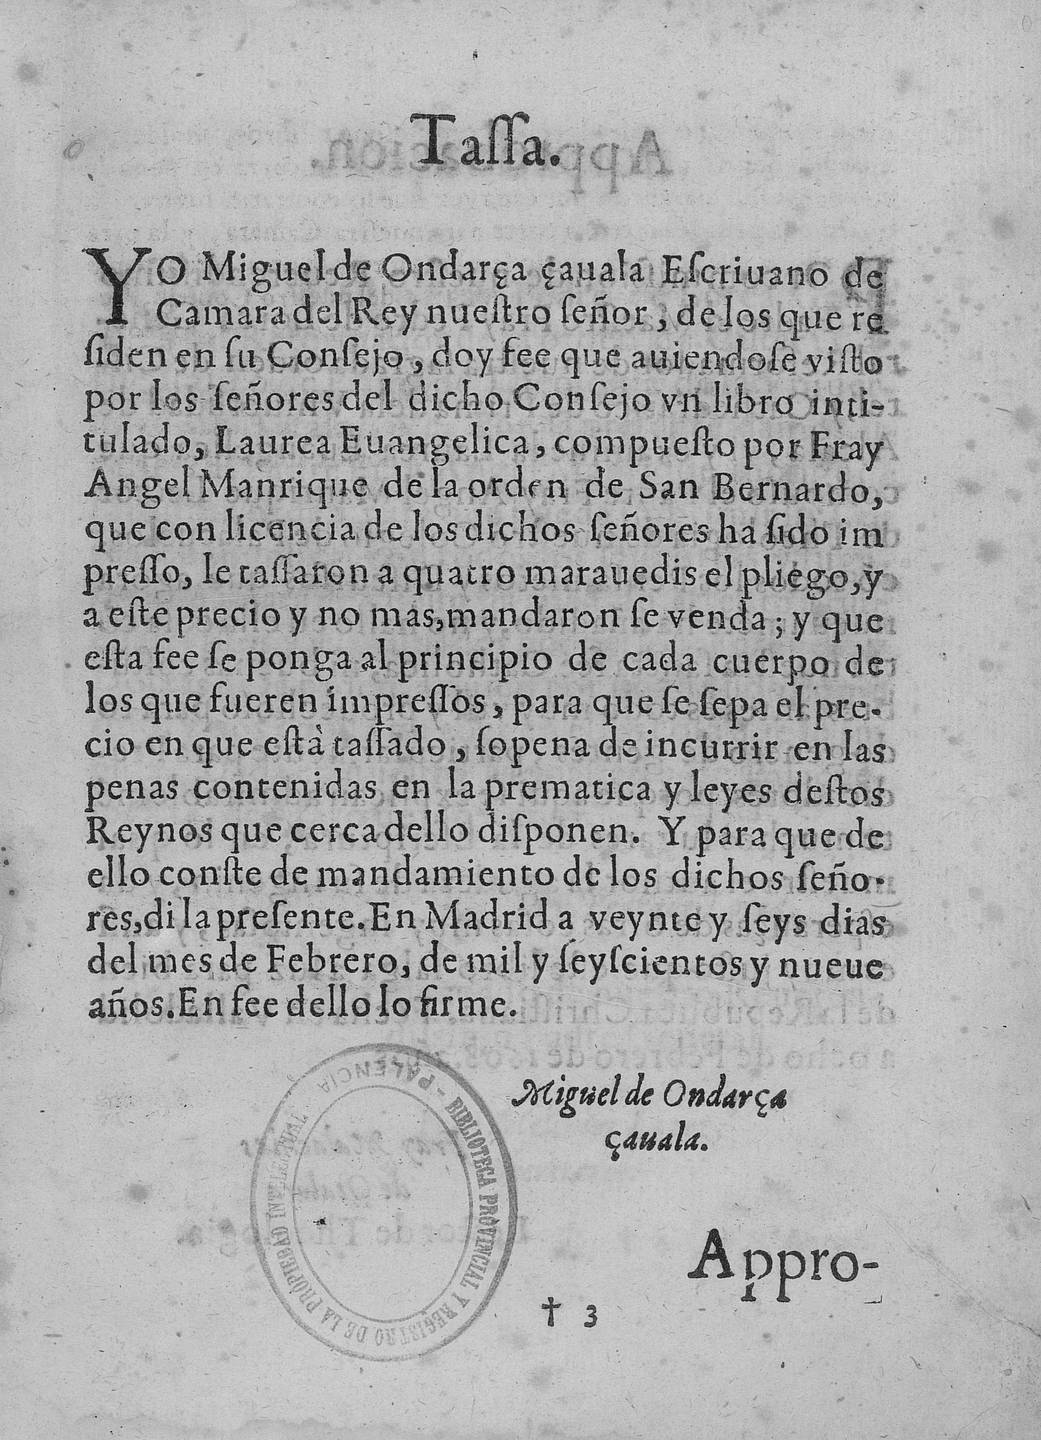 Taſſa.
YO Miguel de Ondarça çauala Eſcriuano de
Camara del Rey nueſtro ſeñor, de los que re
ſiden en ſu Conſejo, doy fee que auiendoſe viſto
por los ſeñores del dicho Conſejo vn libro inti-
tulado, Laurea Euangelica, compueſto por Fray
Angel Manrique de la orden de San Bernardo,
que con licencia de los dichos ſeñores ha ſido im
preſſo, le taſſaron a quatro marauedis el pliego, y
a eſte precio y no mas, mandaron ſe venda; y que
eſta fee ſe ponga al principio de cada cuerpo de
los que fueren impreſſos, para que ſe ſepa el pre-
cio en que eſtà taſſado, ſopena de incurrir en las
penas contenidas en la prematica y leyes deſtos
Reynos que cerca dello diſponen. Y para que de
ello conſte de mandamiento de los dichos ſeño-
res, di la preſente. En Madrid a veynte y ſeys dias
del mes de Febrero, de mil y ſeyſcientos y nueue
años. En fee dello lo firme.
Miguel de Ondarça
çauala.
BIBLIOTECA PROVINCIAL Y REGISTRO DE LA PROPIEDAD INTELECTUAL - PALENCIA -
Appro-
† 3